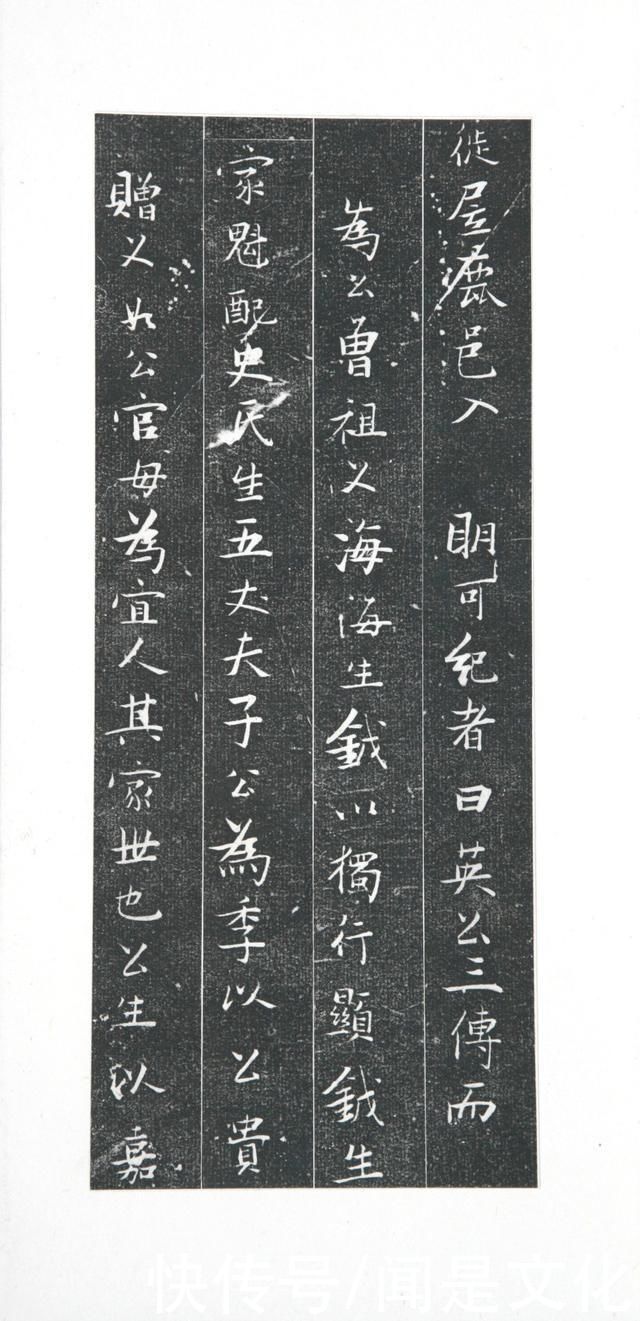 徙居鹿邑入 明可紀者曰英公三傳而
為公曾祖父海海生鉞以獨行顯鉞生
家魁配史氏生五丈夫子公為季以公貴
贈父如公官母為宜人其家世也公生以嘉
快传号/闻是文化